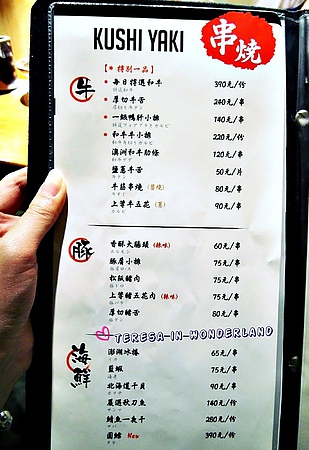 KUSHI YAKI
串燒
【*特別一品】
牛
* 每日特選和牛 390元/竹
* 厚切牛舌 240元/串
* 一級鴨肝小排 140元/串
* 和牛牛小排 220元/竹
澳洲和牛肋條 120元/串
鹽蔥牛舌 50元/片
牛筋串燒 80元/串
上等牛五花 (蔥) 90元/串
カルビ
豚
香酥大腸頭 (辣味) 60元/串
豚肩小排 75元/串
松阪豬肉 75元/串
上等豬五花肉 (辣味) 75元/串
厚切豬舌 80元/串
TERESA-IN-WONDERLAND
海鮮
澎湖冰捲 65元/串
イカ
藍蝦 75元/串
北海道干貝 90元/串
ホタテ
嚴選秋刀魚 140元/竹
サンマ
鯖魚一夜干 280元/竹
圓鱈 New 390元/竹